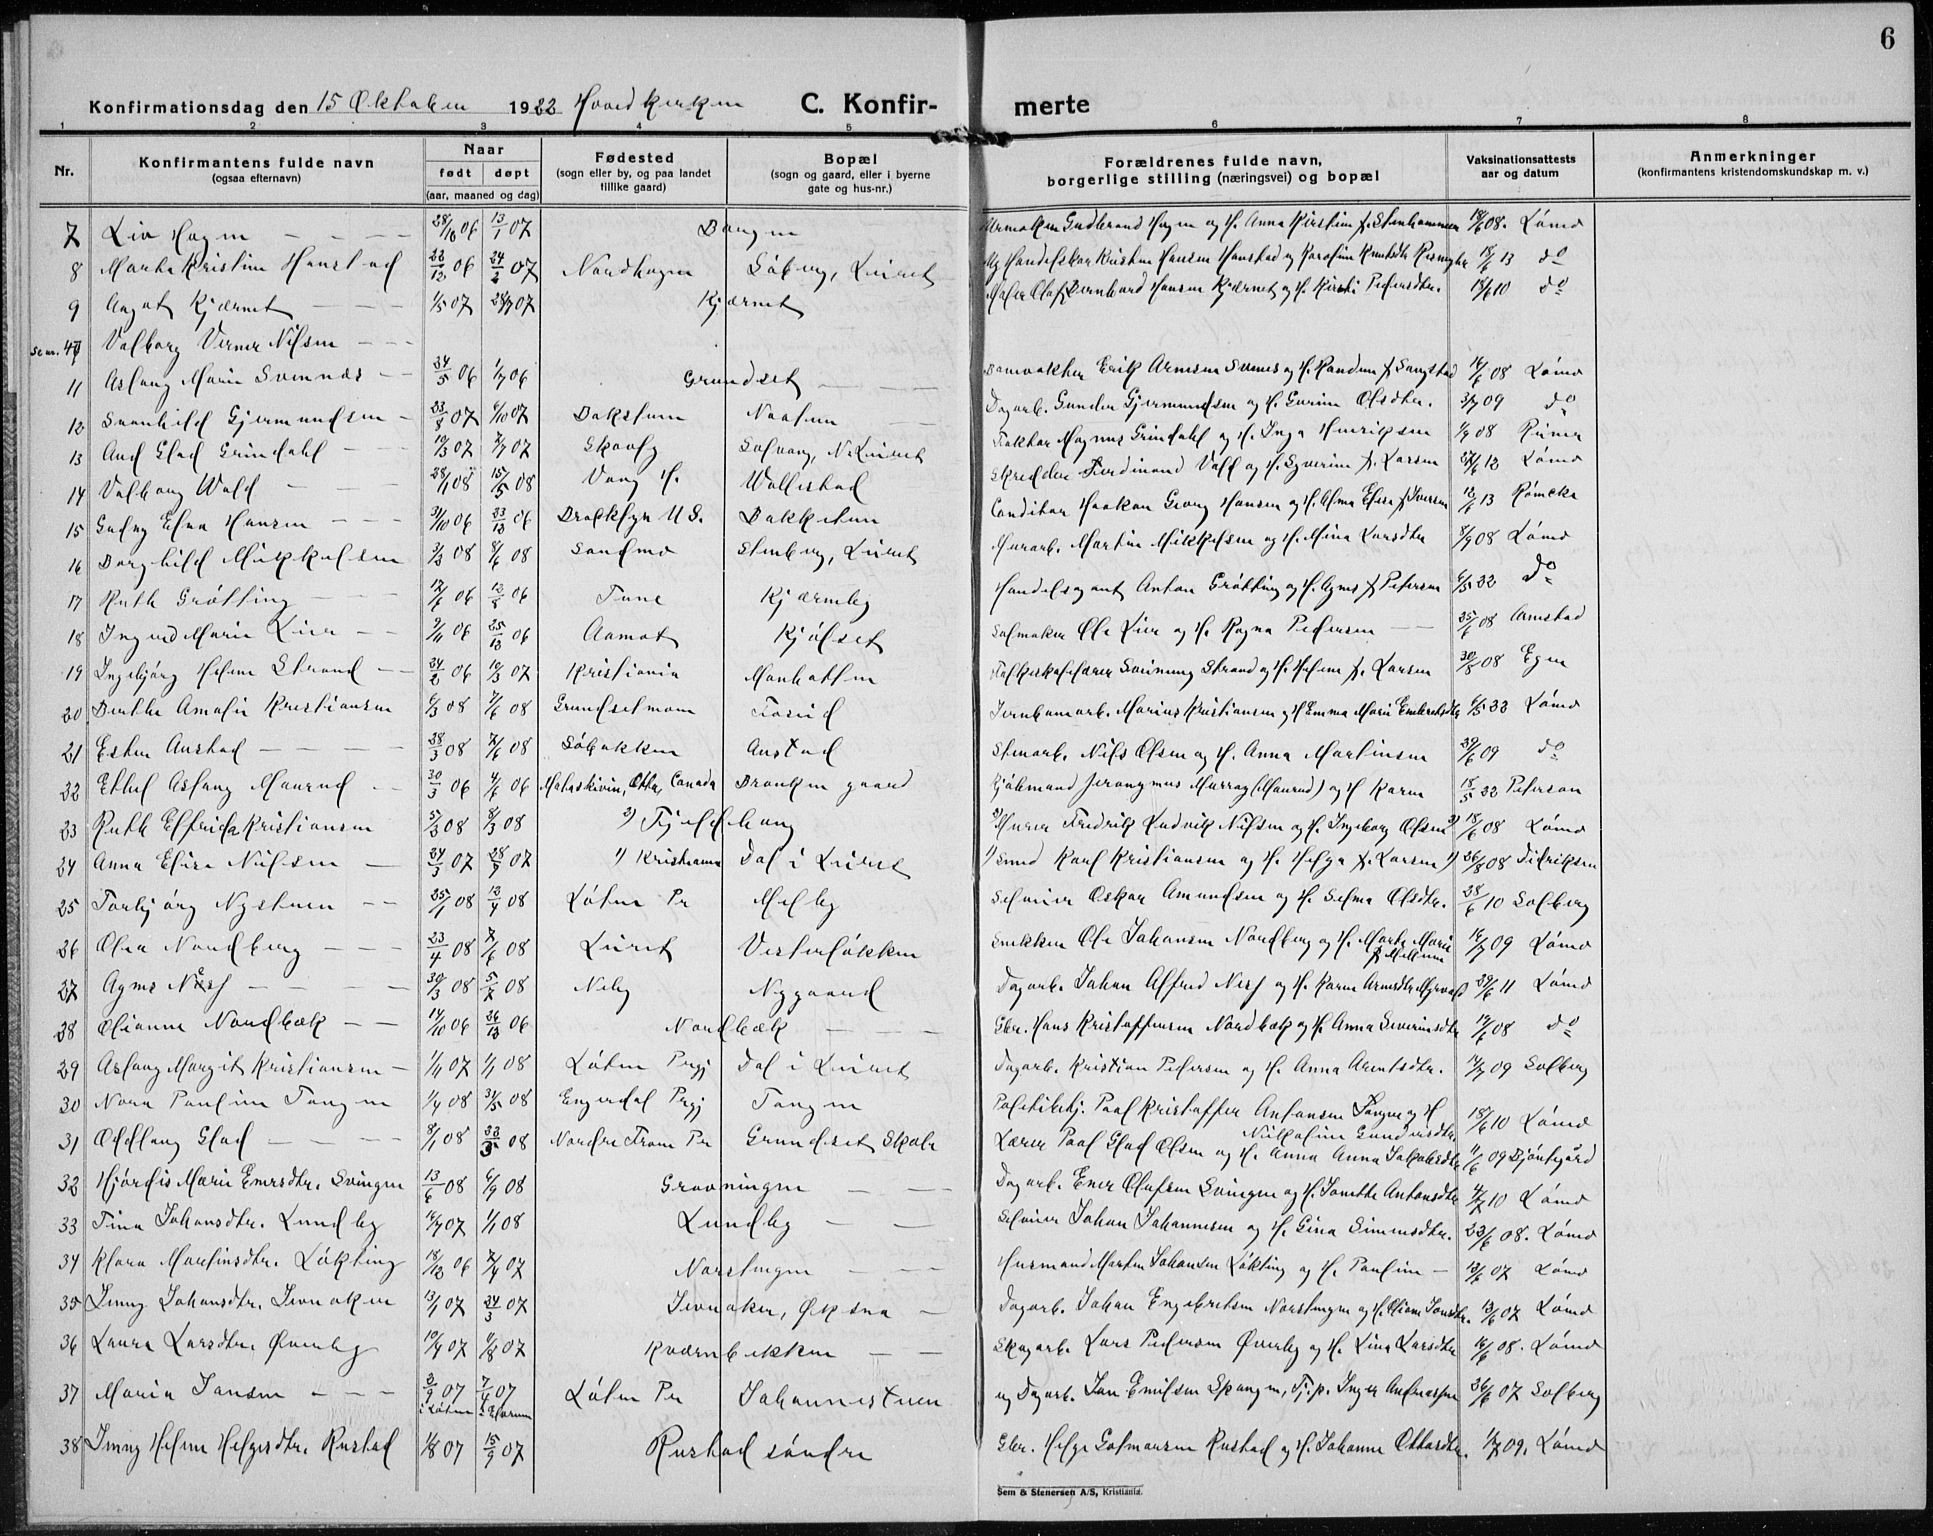 6
Konfirmationsdag den 15 Oktober 1922 Hovedkirken C. Konfir- merte
1 2 3 4 5 6 7 8
Nr. Konfirmantens fulde navn (ogsaa efternavn) Naar født døpt (aar, maaned og dag) Fødested (sogn eller by, og paa landet tillike gaard) Bopæl (sogn og gaard, eller i byerne gate og hus-nr.) Forældrenes fulde navn, borgerlige stilling (næringsvei) og bopæl Vaksinationsattests aar og datum Anmerkninger (konfirmantens kristendomskundskap m. v.)
7 Liv Hagen 28/10 06 13/1 07 Urmaker Gudbrand Hagen og H. Anna Kirstine f. Stenhammer 18/6 08. Lømo
8 Marta Kristine Hanstad 22/12 06 24/2 07 Nordhagen Søberg, Leiret Kristen Hansen Hanstad og Karoline Knutsdtr 18/6 13 do
9 Aagot Kjærnet 1/5 07 28/7 07 Kjærnet Maler Olaf Bernhard Hansen Kjærnet og H. Kirsti Pedersdtr. 18/6 10 do
Valborg Verner Nilsen
11 Aslaug Marie Svennes 24/5 06 1/7 06 Grundset Damvokter Erik Arnesen Svenes og H. Randine f. Sangstad 16/6 08 Lømo
12 Svanhild Gjermundsen 23/8 07 6/10 07 Baketunen Dagarb. Gunder Gjermundsen og H. Gurine Olsdtr. 3/7 09 do
13 Aud Glad Grindahl 10/3 07 7/7 07 Skavly Solvang, N. Leiret Magnus Grindahl og H. Inga Henriksen 1/9 08
14 Valborg Wold 28/1 08 15/5 08 Vang H. Wollestad Skredder Ferdinand Vold og H. Severine f. Larsen 27/6 12 Lømo
15 Solveg Elna Hansen 31/10 06 23/12 06 Bakketun Conditor Haakon Georg Hansen og H. Alma Elise f. Iversen 12/6 13
16 Borghild Mikkelsen 3/3 08 8/6 08 Sandmo Stenberg, Leiret Murarb. Martin Mikkelsen og H. Mina Larsdtr 8/9 08 Lømo
17 Ruth Grøtting 12/6 06 12/8 06 Tune Kjærneby Handelsagent Anton Grøtting og H. Agnes f. Petersen 6/5 22 do
18 Ingrid Marie Lier 9/11 06 25/12 06 Aamot Kjølset Salmaker Ole Lier og H. Ragna Pedersen 25/6 08
19 Ingebjørg Helene Strand 24/2 06 10/3 07 Kristiania Manhatten Strand og H. Helene f. Larsen 30/8 08
20 Berthe Amalie Kristiansen 6/3 08 7/6 08 Grundsetmoen Foseid Jernbanearb. Marius Kristiansen og H. Emma Marie Embretsdtr 6/5 22 Lømo
21 Ester Austad 28/3 08 7/6 08 Søbakken Austad Stenarb. Nils Olsen og H. Anna Martinsen 29/6 09 do
22 Ethel Aslaug Maurud 30/3 06 4/6 06 Canada Branken gaard Kjøbmand Jeronymus Murray (Maurud) og H Karen 18/5 22 Peterson
23 Ruth Elfrida Kristiansen 5/2 08 8/3 08 2) Fjeldhaug 2) Murer Fredrik Ludvik Nilsen og H. Ingeborg Olsen 2) 18/6 08 Lømo
24 Anna Elise Nilsen 24/3 07 28/9 07 1) Kristiania Dal i Leiret 1) Smed Karl Kristiansen og H. Helga f. Larsen 1) 26/8 08 Didriksen
25 Torbjørg Nystuen 25/1 08 12/4 08 Løten Pr Melby Selveier Oskar Amundsen og H. Selma Olsdtr. 28/6 10 Solberg
26 Olea Nordberg 23/4 08 7/6 08 Leiret Vesterløkken Snekker Ole Johansen Nordberg og H. Marte Marie 16/7 09 Lømo
27 Agnes Næss 30/3 08 5/7 08 Neby Nygaard Dagarb. Johan Alfred Ness og H. Karen Arnesdtr 29/6 11 Lømo
28 Oliane Nordbæk 14/10 06 26/12 06 Nordbæk Gbr. Hans Kristoffersen Nordbæk og H. Anna Severinsdtr 19/6 08 do
29 Aslaug Margit Kristiansen 1/11 07 1/1 08 Løten Prgj Dal i Leiret Dagarb. Kristian Pedersen og H. Anna Arntsdtr. 14/7 09 Solberg
30 Nora Pauline Tangen 1/4 08 31/5 08 Engerdal Prgj Tangen Paul Kristoffer Antonsen Tangen og H Nikoline Gundersdtr 18/6 10 Lømo
31 Oddlaug Glad 8/1 08 22/3 08 Nordre Fron Pr Grundset Skole Lærer Paul Glad Olsen og H. Anna Anna Jakobsdtr 11/6 09
32 Hjørdis Marie Enersdtr. Svingen 13/6 08 6/9 08 Grovningen Dagarb. Ener Olufsen Svingen og H. Jonette Antonsdtr 4/7 10 Lømo
33 Tina Johansdtr. Lundby 16/9 07 1/1 08 Lundby Selveier Johan Johannesen og H. Gina Simensdtr. 23/6 08. Lømo
34 Klara Martinsdtr. Løkting 18/12 06 7/4 07 Norstingen Husmand Martin Johansen Løkting og H. Pauline 13/6 07 Lømo
35 Jenny Johansdtr. Jevnaker 13/1 07 24/3 07 Jevnaker, Øksna Dagarb. Johan Engebretsen Norstingen og H. Oliane Jonsdtr. 13/6 07 Lømo
36 Laura Larsdtr. Øverby 10/4 07 11/8 07 Kværnbekken Skogarb. Lars Pedersen Øverby og H. Lina Larsdtr 16/6 08. Lømo
37 Maria Jansen 3/2 07 7/4 07 Løten Pr Johannestuen ug Dagarb. Jan Emilsen Spangen, Tj.p. Inger Andreassen 26/6 07 Solberg
38 Jenny Helene Helgesdtr. Rustad 1/8 07 15/9 07 Rustad søndre Gbr. Helge Golmansen Rustad og H. Johanne Ottersdtr. 1/7 09. Lømo
Sem & Stenersen A/S, Kristiania.